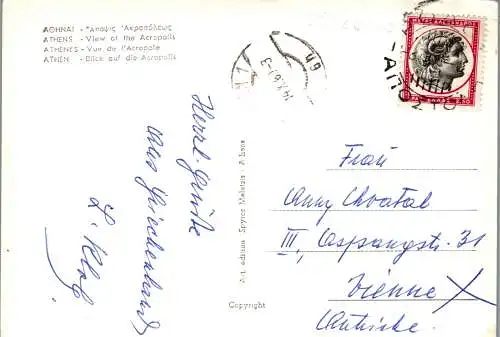 ΑΘΗΝΑΙ - Ἄποψις Ἀκροπόλεως
ATHENS - View of the Acropolis
ATHÈNES - Vue de l'Acropole
ATHEN - Blick auf die Acropolis
Herzl. Grüße
aus Griechenland
Art. edition Spyros Meletzis - Athens
Copyright
ΑΠΟΣΤΟΛ
Frau
Anny Chvatal
III, Aspangstr. 31
Vienne
Autriche.